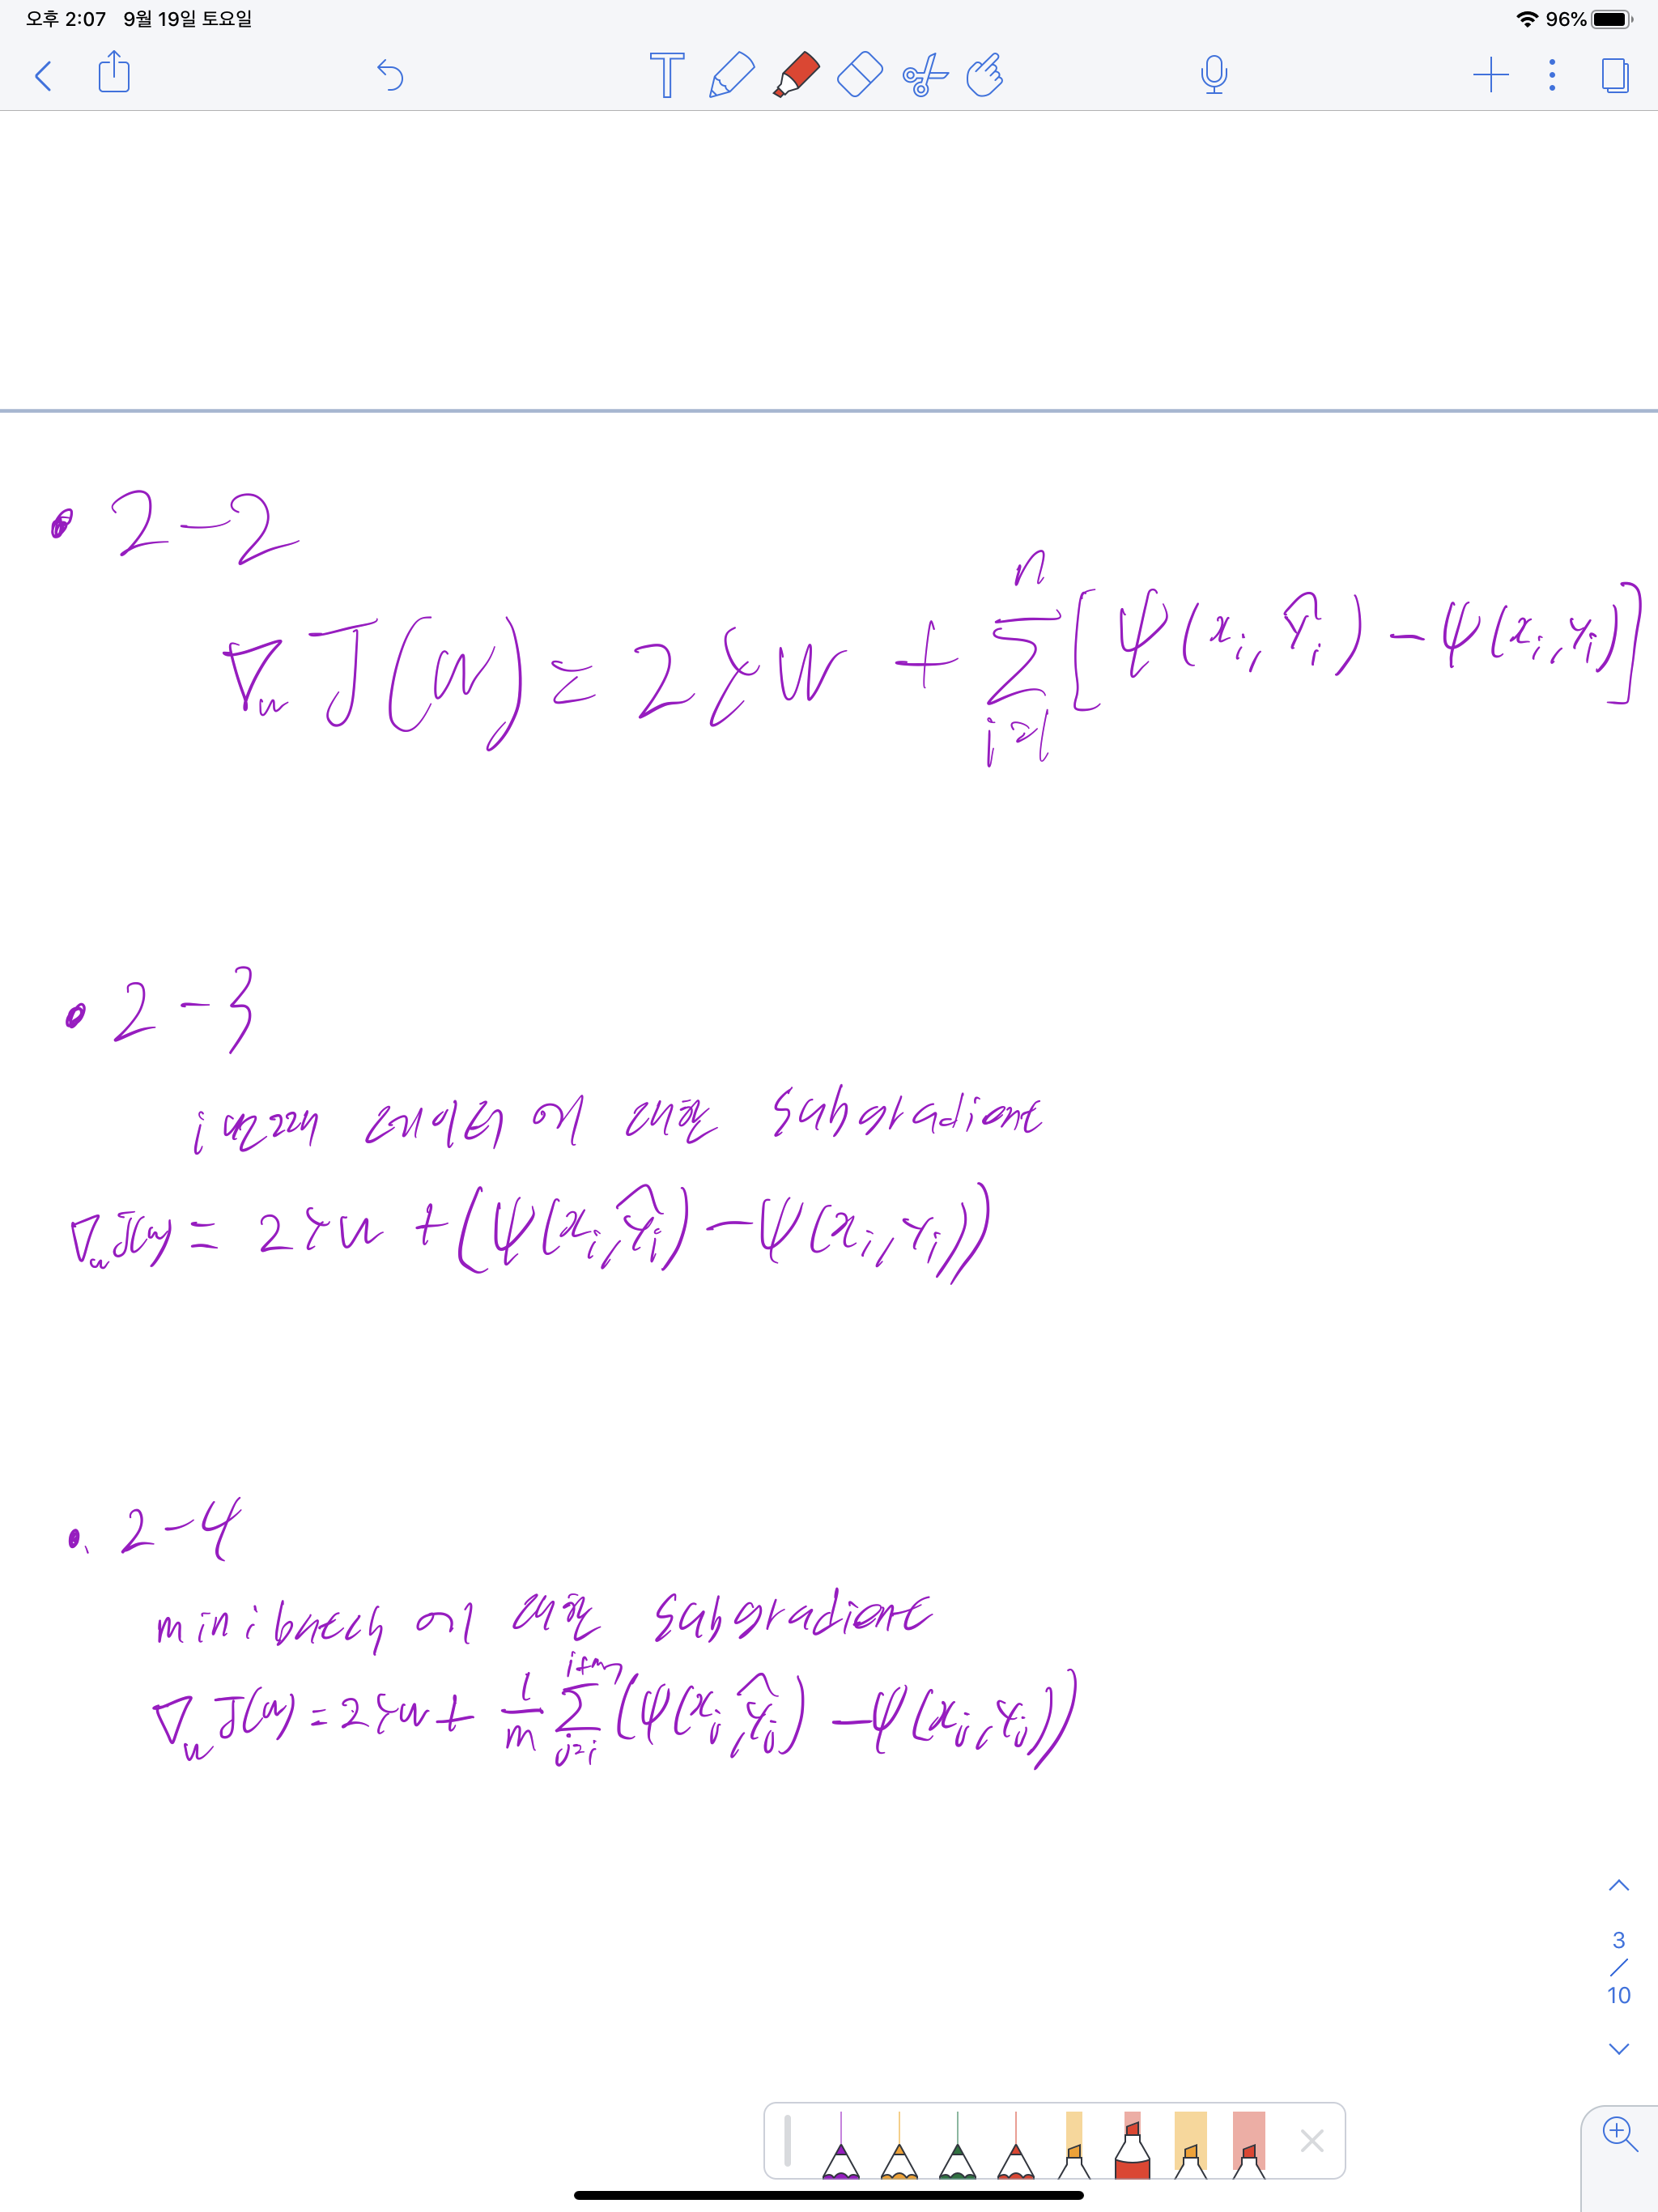 오후 2:07 9월 19일 토요일 96%
• 2-2
∇w J(w) = 2λw + Σ_{i=1}^{n} [ψ(xi, ŷi) - ψ(xi, yi)]
• 2-3
i 번째 데이터에 대한 subgradient
∇w J(w) = 2λw + (ψ(xi, ŷi) - ψ(xi, yi))
• 2-4
minibatch에 대한 subgradient
∇w J(w) = 2λw + 1/m Σ_{j=i}^{i+m} (ψ(xj, ŷj) - ψ(xj, yj))
3
/
10